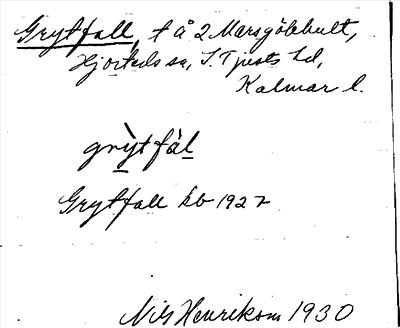 Grytfall, t å 2 Marsgöbbult,
Hjorteds sn, S. Tjusts hd,
Kalmar l.
grỳtfàl
Grytfall kb 1927
Nils Henrikson 1930